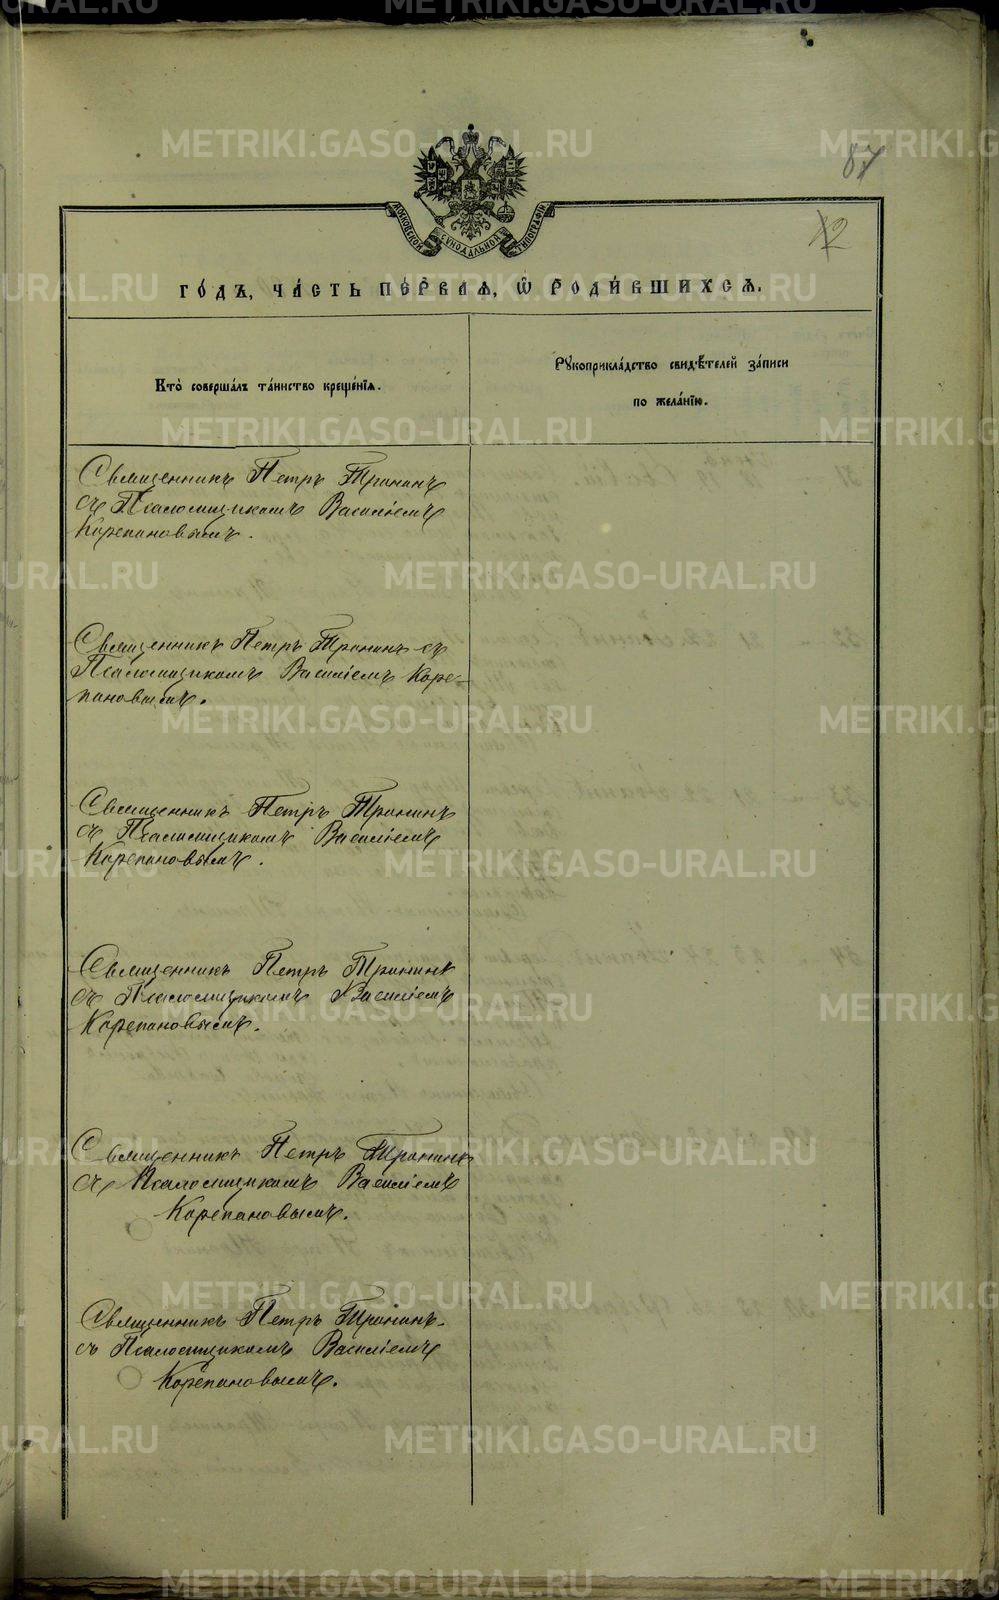 87
12
МОСКОВСКОЙ СѴНОДАЛЬНОЙ ТИПОГРАФІИ
го́дъ, ча́сть пе́рваѧ, ѡ҆ роди́вшихсѧ.
Кто̀ соверша́лъ та́инство креще́нїѧ.
Рꙋкоприкла́дство свидѣ́телей за́писи
по жела́нїю.
Священникъ Петръ Тронинъ
съ Псаломщикомъ Василіемъ
Корепановымъ.
Священникъ Петръ Тронинъ съ
Псаломщикомъ Василіемъ Коре-
пановымъ.
Священникъ Петръ Тронинъ
съ Псаломщикомъ Василіемъ
Корепановымъ.
Священникъ Петръ Тронинъ
съ Псаломщикомъ Василіемъ
Корепановымъ.
Священникъ Петръ Тронинъ
съ Псаломщикомъ Василіемъ
Корепановымъ.
Священникъ Петръ Тронинъ
съ Псаломщикомъ Василіемъ
Корепановымъ.
METRIKI.GASO-URAL.RU